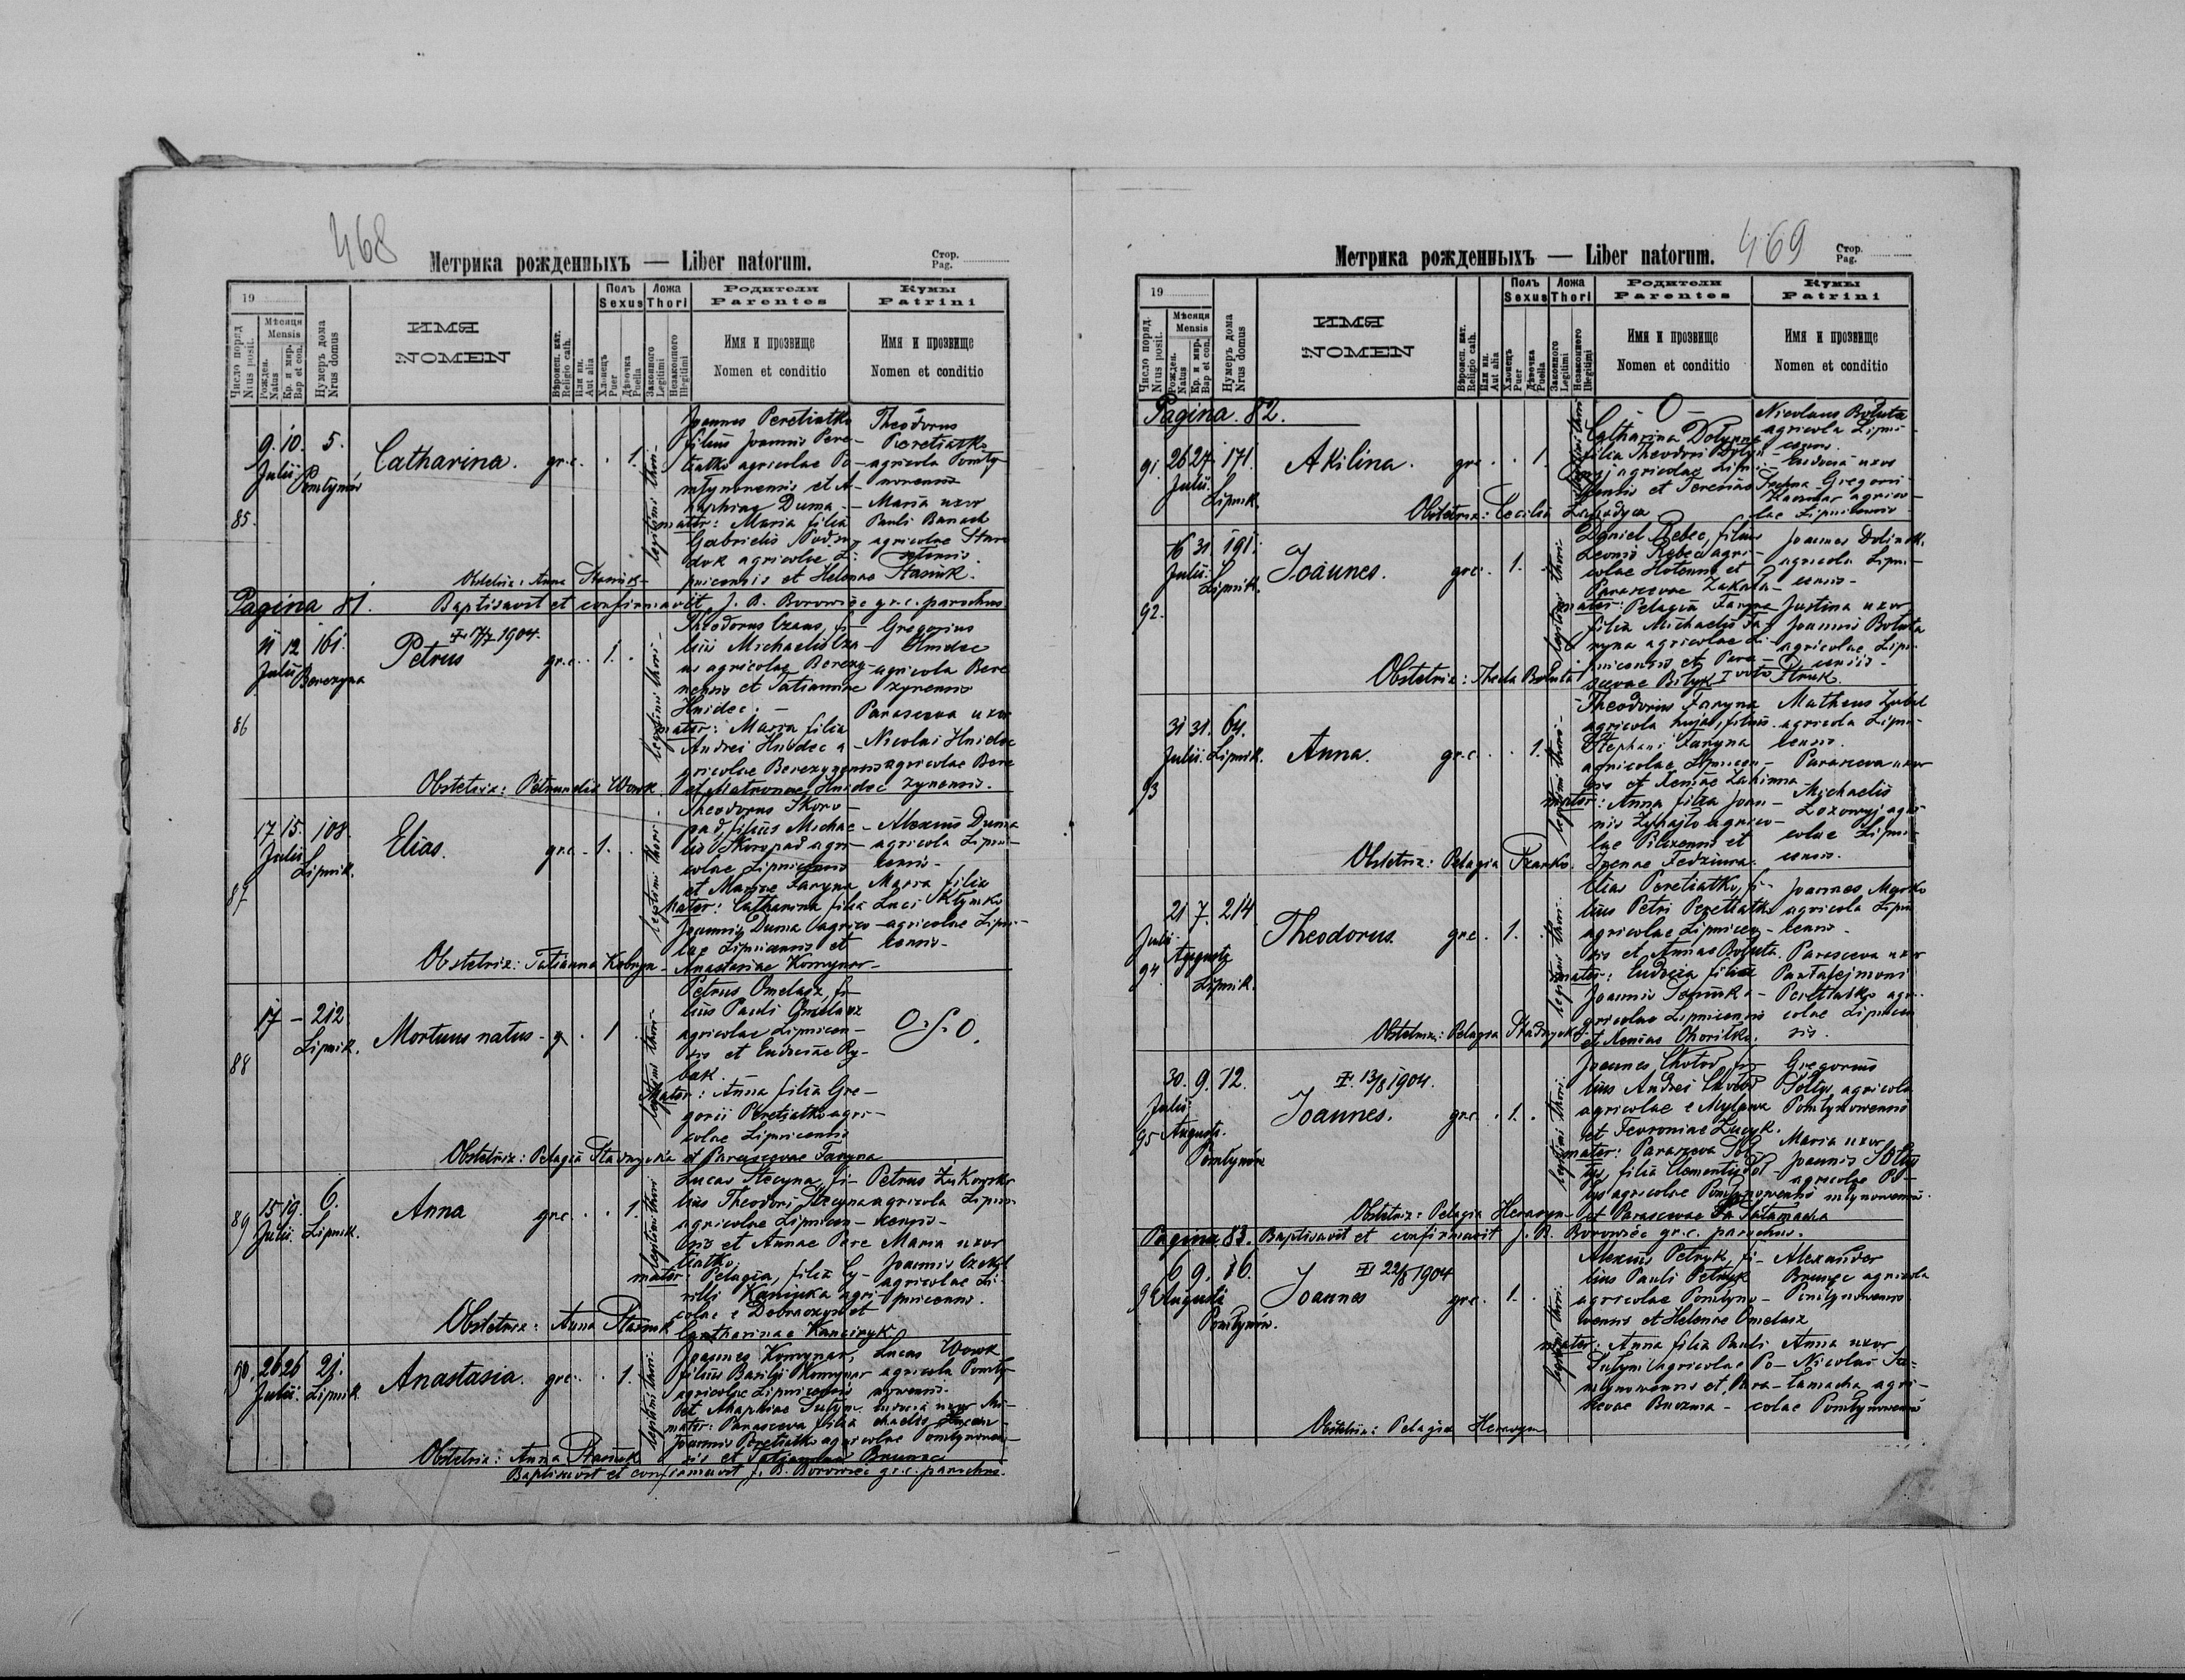 468
Метрика рожденныхъ — Liber natorum.
Стор.
Pag.
19
Число поряд.
Nrus posit.
Мѣсяця
Mensis
Рожден.
Natus
Кр. и мир.
Bap et con.
Нумеръ дома
Nrus domus
ИМЯ
NOMEN
Вѣроисп. кат.
Religio cath.
Или ин.
Aut alia
Полъ
Sexus
Хлопецъ
Puer
Дѣвочка
Puella
Ложа
Thori
Законного
Legitimi
Незаконного
Illegitimi
Родители
Parentes
Имя и прозвище
Nomen et conditio
Кумы
Patrini
Имя и прозвище
Nomen et conditio
85.
9. 10. 5.
Julii Pomłynów
Catharina.
gr.c. . 1.
legitimi thori
Joannes Peretiatko
filius Joannis Pere-
tiatko agricolae Po-
młynovensis et A-
haphiae Duma -
mater: Maria filia
Gabrielis
agricolae Li-
pnicensis et Helenae Stasiuk.
Theodorus
Peretiatko
agricola Pomły-
novensis
Maria uxor
Pauli Banach
agricolae
Obstetrix: Anna Stasiuk
Pagina 81. Baptisavit et confirmavit J. B. Borowiec gr.c. parochus
86
11 12 161.
Julii Berezyna
Petrus
1904.
gr.c. . 1. .
legitimi thori
Theodorus Czaus, fi-
lius Michaelis Cza-
us agricolae Berezy-
nensis et Tatiannae
Hnidec. -
mater: Maria filia
Andrei Hnidec a-
gricolae Berezynensis
et Matronae Hnidec
Gregorius
Hnidec
agricola Bere
zynensis
Parasceva uxor
Nicolai Hnidec
agricolae Bere
zynensis.
Obstetrix: Petronelia Wowk
87
17. 15. 108.
Julii Lipnik.
Elias.
gr.c. . 1. . .
legitimi thori
Theodorus Skoro-
pad, filius Michae-
lis Skoropad agri-
colae Lipnicensis
et Mariae Faryna
mater: Catharina filia
Joannis Duma agrico-
lae Lipnicensis et
Anastasiae Komynar-
Alexius Duma
agricola Lipni-
censis-
Maria filia
Luci Klymko
agricolae Lipni-
censis-
Obstetrix: Tatianna Kobryn-
88
17 — 212
Lipnik.
Mortuus natus - g . 1
legitimi thori
Petrus Omelasz, fi-
lius Pauli Omelasz
agricolae Lipnicen-
sis et Eudociae Ry-
bak.
Mater: Anna filia Gre-
gorii Peretiatko agri-
colae Lipnicensis
et Parascevae Faryna
Obstetrix: Pelagia Stadnycka
89
15 19. 6.
Julii. Lipnik.
Anna
gr.c. . . 1.
legitimi thori
Lucas Stecyna, fi-
lius Theodori Stecyna
agricolae Lipnicen-
sis et Annae Pere
tiatko.
mater: Pelagia, filia Cy-
rilli Kaniuka agri-
colae e Dobraczyn et
Catharinae
Petrus Żukowski
agricola Lipni-
censis-
Maria uxor
Joannis
agricolae Li-
pnicensis.
Obstetrix: Anna Stasiuk
90.
26 26 21.
Julii. Lipnik
Anastasia.
gr.c. . . 1.
legitimi thori
Joannes Komynar,
filius Basilii Komynar
agricolae Lipnicensis
et Ahaphiae Sułym
mater: Parasceva filia
Joannis Peretiatko agricolae Pomłynoven-
sis et Tatjannae
Lucas Wowk
agricola Pomły-
novensis.
Eudocia uxor Mi-
chaelis
Obstetrix: Anna Stasiuk
Baptisavit et confirmavit J. B. Borowiec gr.c. parochus.
469
Метрика рожденныхъ — Liber natorum.
Стор.
Pag.
19
Число поряд.
Nrus posit.
Мѣсяця
Mensis
Рожден.
Natus
Кр. и мир.
Bap et con.
Нумеръ дома
Nrus domus
ИМЯ
NOMEN
Вѣроисп. кат.
Religio cath.
Или ин.
Aut alia
Полъ
Sexus
Хлопецъ
Puer
Дѣвочка
Puella
Ложа
Thori
Законного
Legitimi
Незаконного
Illegitimi
Родители
Parentes
Имя и прозвище
Nomen et conditio
Кумы
Patrini
Имя и прозвище
Nomen et conditio
Pagina. 82.
91.
26 27. 171.
Julii. Lipnik.
Akilina.
gr.c . . 1.
- O -
Catharina
filia Theodori
agricolae Lipni-
censis et Teresiae
Nicolaus Bołuta
agricola Lipni-
censis.
Eudocia uxor
Gregorii
agrico-
lae Lipnicensis
Obstetrix: Cecilia
92.
16 31. 191.
Julii. Lipnik.
Joannes.
gr.c. . 1. .
legitimi thori
Daniel Rebec, filius
Leonis Rebec agri-
colae
Parascevae
mater: Pelagia Faryna
filia Michaelis Fa-
ryna agricolae Li-
pnicensis et Para-
scevae Bityk I voto Struk.
Joannes Dolinski
agricola Lipni-
censis-
Justina uxor
Joannis Bołuta
agricolae Lipni-
censis-
Obstetrix: Thecla Bołuta
93
31 31. 64.
Julii. Lipnik.
Anna.
gr.c. . . 1.
legitimi thori
Theodorus Faryna
agricola hujas, filius
Stephani Faryna
agricolae Lipnicen-
sis et Xeniae
mater: Anna filia Joan-
nis agrico-
lae et
Irenae Fedziura.
Matheus
agricola Lipni-
censis.
Parasceva uxor
Michaelis
Łozowyj agri-
colae Lipni-
censis.
Obstetrix: Pelagia
94.
21 7. 214
Julii Augusti Lipnik.
Theodorus.
gr.c. . 1. .
legitimi thori
Elias Peretiatko, fi-
lius Petri Peretiatko
agricolae Lipnicen-
sis et Annae Bołuta.
mater: Eudocia filia
Joannis
agricolae Lipnicensis
et Xeniae Ohoritko.
Joannes Myrko
agricola Lipni
censis-
Parasceva uxor
Pantalejmoni
Peretiatko agri-
colae Lipnicen
sis.
Obstetrix: Pelagia Stadnycka
95
30. 9. 12.
Julii Augusti. Pomłynów
13/8 1904.
Joannes.
gr.c. . 1. .
legitimi thori
Joannes fi-
lius Andrei
agricolae e
et Fevroniae
mater: Parasceva Soł-
tys, filia Clementis Soł-
tys agricolae Pomłynowensis
et Parascevae Sałamacha
Gregorius
Sołtys agricola
Pomłynowensis
Maria uxor
Joannis Sołtys
agricolae Po-
młynowensis.
Obstetrix: Pelagia
Pagina. 83. Baptisavit et confirmavit J. B. Borowiec gr.c. parochus.
96
6 9. 16.
Augusti Pomłynów.
22/8 1904
Joannes
gr.c. . 1. .
legitimi thori
Alexius Petryk, fi-
lius Pauli Petryk
agricolae Pomłyno-
wensis et Helenae Omelasz
mater: Anna filia Pauli
Sułym agricolae Po-
młynowensis et Para-
scevae
Alexander
agricola
Pomłynowensis
Anna uxor
Nicolai Sa-
łamacha agri-
colae Pomłynowensis
Obstetrix: Pelagia